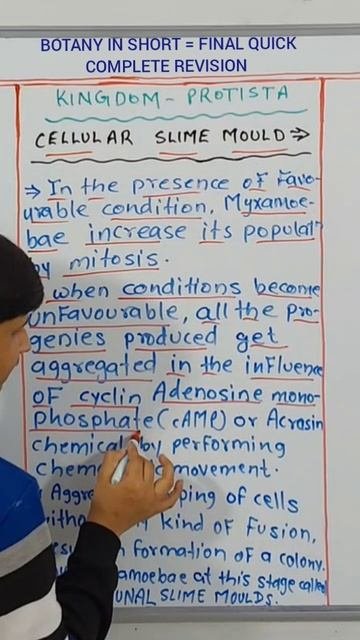 BOTANY IN SHORT = FINAL QUICK
COMPLETE REVISION
KINGDOM - PROTISTA
CELLULAR SLIME MOULD ⇒
⇒ In the presence of Favo-
urable condition, Myxamoe-
bae increase its populatn
by mitosis.
when conditions become
unFavourable, all the pro-
genies produced get
aggregated in the inFluence
OF cyclin Adenosine mono-
phosphate (cAMP) or Acrasin
chemical by performing
movement.
ping of cells
kind OF Fusion,
Formation OF a colony.
amoebae at this stage called
UNAL SLIME MOULDS.